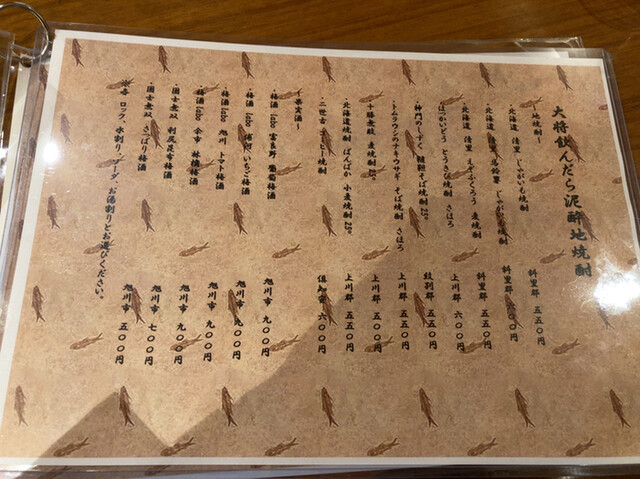 大将飲んだら泥酔地焼酎
〜地焼酎〜
・北海道 清里 じゃがいも焼酎 斜里郡 五五〇円
・北海道 清里 じゃがいも焼酎 斜里郡 〇〇円
・北海道 清里 えぞふくろう 麦焼酎 斜里郡 五五〇円
・ほっかいどう とうきび焼酎 さほろ 上川郡 六〇〇円
・神門のしずく 韃靼そば焼酎 25° 紋別郡 五五〇円
・トムラウシのナキウサギ そば焼酎 さほろ 上川郡 五五〇円
・十勝無敵 麦焼酎 上川郡 五五〇円
・北海道焼酎 ばんばか 小麦焼酎 25° 上川郡 五五〇円
・二世古 コーヒー焼酎 倶知安 六〇〇円
〜果実酒〜
・梅酒 Labo 富良野 葡萄梅酒 旭川市 九〇〇円
・梅酒 Labo 浦河 いちご梅酒 旭川市 九〇〇円
・梅酒 Labo 旭川 トマト梅酒 旭川市 九〇〇円
・梅酒 Labo 余市 林檎梅酒 旭川市 九〇〇円
・國士無双 利尻昆布梅酒 旭川市 七〇〇円
・國士無双 さっぱり梅酒 旭川市 五〇〇円
ロック、水割り、ソーダ、お湯割りとお選びください。